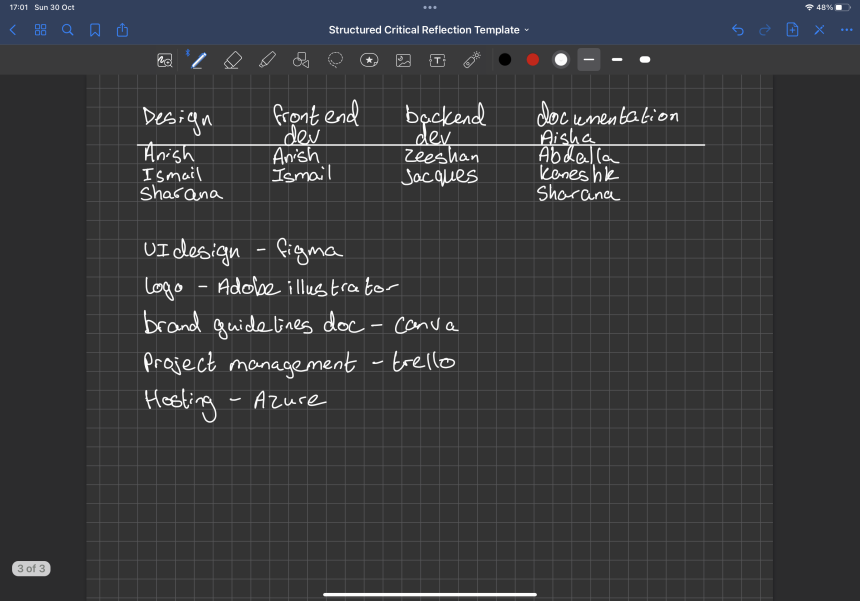 17:01 Sun 30 Oct
48%
Structured Critical Reflection Template
Design frontend backend documentation
dev dev Aisha
Anish Anish Zeeshan Abdalla
Ismail Ismail Jacques Kaneshk
Sharana Sharana
UI design - figma
logo - Adobe illustrator
brand guidelines doc - canva
Project management - trello
Hosting - Azure
3 of 3